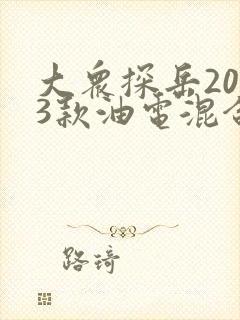 大众探岳20
3款油电混合
路琦